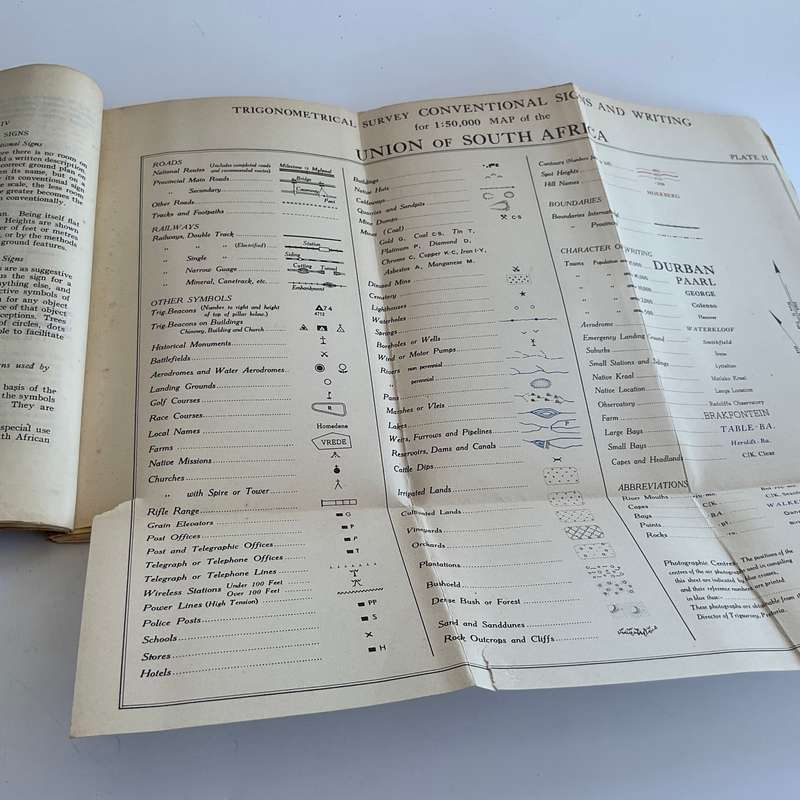 IV
SIGNS
ional Signs
ere there is no room on
ld a written description,
orrect ground plan on
en its name, but on a
its conventional sign
e scale, the less room
e greater becomes the
n conventionally.
an. Being itself flat
Heights are shown
er of feet or metres
, or by the methods
ground features.
Signs
s are as suggestive
us the sign for a
nything else, and
ctive symbols of
n for any object
ce of that object
ceptions. Trees
of circles, dots
ble to facilitate
rns used by
basis of the
the symbols
They are
special use
th African
TRIGONOMETRICAL SURVEY CONVENTIONAL SIGNS AND WRITING
for 1:50,000 MAP of the
UNION OF SOUTH AFRICA
PLATE II
ROADS
National Routes (Includes completed roads and commenced routes)
Provincial Main Roads
Secondary
Other Roads
Tracks and Footpaths
Bridge
Causeway
Port
RAILWAYS
Railways, Double Track
" " (Electrified)
" Single
" Narrow Guage
" Mineral, Canetrack, etc.
Station
Siding
Cutting Tunnel
Embankment
OTHER SYMBOLS
Trig. Beacons (Number to right and height of top of pillar below.)
74
4712
Trig. Beacons on Buildings
Chimney, Building and Church
Historical Monuments
Battlefields
Aerodromes and Water Aerodromes
Landing Grounds
Golf Courses
Race Courses
R
Local Names
Homedene
Farms
VREDE
Native Missions
Churches
" with Spire or Tower
Rifle Range
Grain Elevators
G
Post Offices
P
Post and Telegraphic Offices
P
Telegraph or Telephone Offices
T
Telegraph or Telephone Lines
Wireless Stations Under 100 Feet
Over 100 Feet
Power Lines (High Tension)
Police Posts
PP
Schools
S
Stores
Hotels
H
Buildings
Native Huts
Causeways
Quarries and Sandpits
Mine Dumps
Mines
C-S
(Coal)
Gold G, Coal C-S, Tin T,
Platinum P, Diamond D,
Chrome C, Copper K-C, Iron I-Y,
Asbestos A, Manganese M.
Disused Mine
Cemetery
Lighthouses
Waterholes
Springs
Boreholes or Wells
Wind or Motor Pumps
Rivers non perennial
" perennial
Pans
Marshes or Vleis
Lakes
Weirs, Furrows and Pipelines
P
Reservoirs, Dams and Canals
Cattle Dips
Irrigated Lands
Cultivated Lands
Vineyards
Orchards
Plantations
Bushveld
Dense Bush or Forest
Sand and Sanddunes
Rock Outcrops and Cliffs
Contours
Spot Heights
Hill Names
HOEKBERG
BOUNDARIES
Boundaries International
" Provincial
CHARACTER OF WRITING
Towns Population
DURBAN
PAARL
GEORGE
Colenso
Hanover
Aerodrome
WATERKLOOF
Emergency Landing Ground
Smithsfield
Suburbs
Irene
Small Stations and Sidings
Lyttelton
Native Kraal
Matlaks Kraal
Native Location
Langa Location
Observatory
Radcliffe Observatory
Farm
BRAKFONTEIN
Large Bays
TABLE-BA.
Small Bays
Herolds-Ba.
Capes and Headlands
C/K. Clear
ABBREVIATIONS
River Mouths
Capes
C/K.
Bays
BA
Points
pt.
Rocks
Photographic Centres The positions of the
centres of the air photographs used in compiling
this sheet are indicated by blue crosses,
and their reference numbers are printed
in blue thus:-
These photographs are obtainable from the
Director of Trigsurvey, Pretoria.